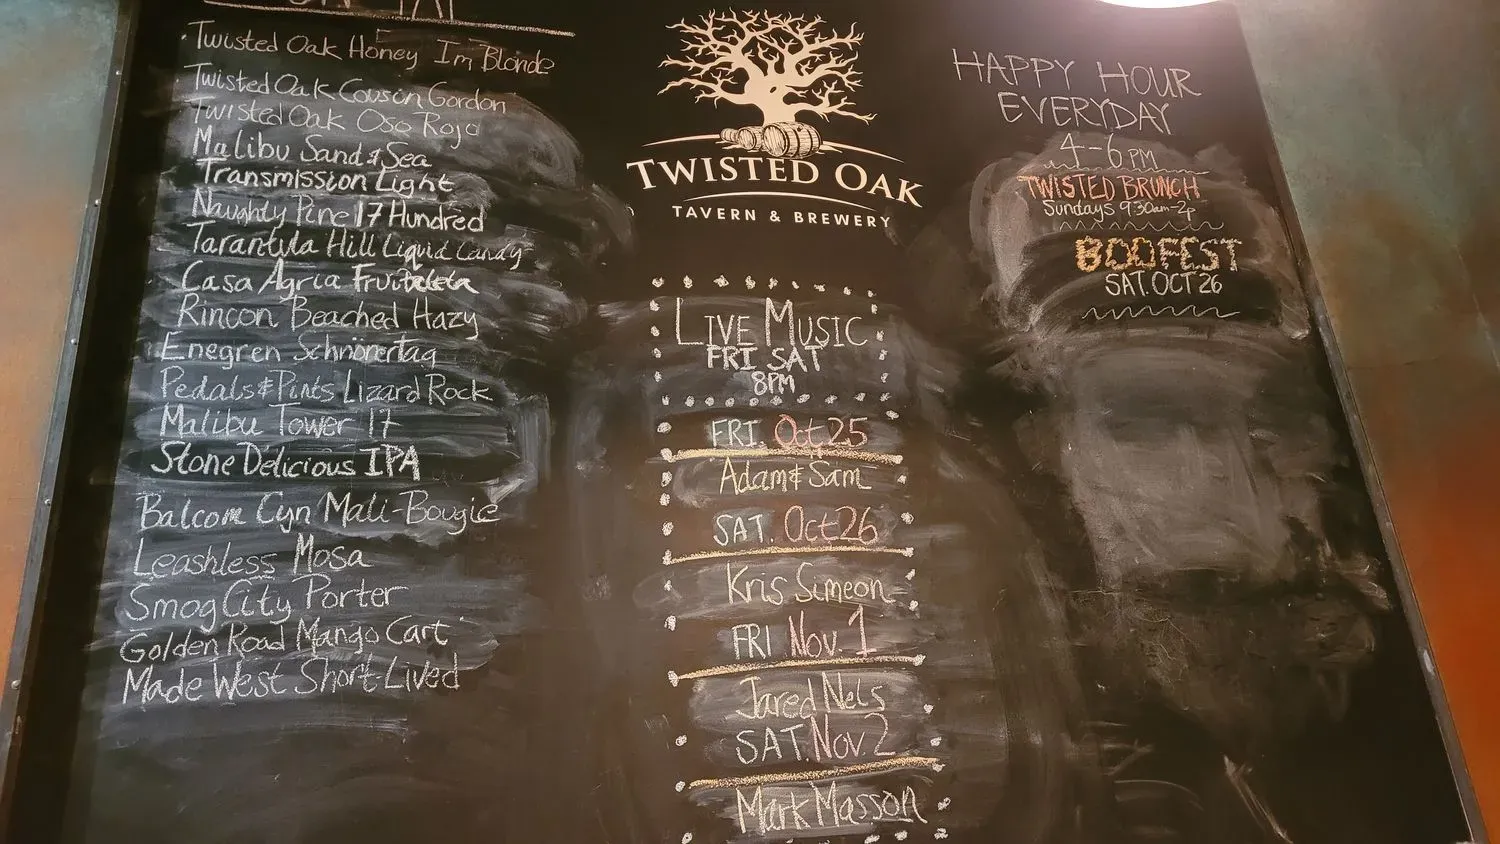 ON TAP
Twisted Oak Honey Im Blonde
Twisted Oak Cousin Gordon
Twisted Oak Oso Rojo
Malibu Sand & Sea
Transmission Light
Naughty Pine 17 Hundred
Tarantula Hill Liquid Candy
Casa Agria Frutaleta
Rincon Beached Hazy
Enegren Schnönertag
Pedals & Pints Lizard Rock
Malibu Tower 17
Stone Delicious IPA
Balcom Cyn Mali-Bougie
Leashless Mosa
Smog City Porter
Golden Road Mango Cart
Made West Short-Lived
TWISTED OAK
TAVERN & BREWERY
LIVE MUSIC
FRI SAT
8PM
FRI. Oct 25
Adam & Sam
SAT. Oct 26
Kris Simeon
FRI Nov. 1
Jared Nels
SAT. Nov 2
Mark Masson
HAPPY HOUR
EVERYDAY
4-6 PM
TWISTED BRUNCH
Sundays 9:30am-2p
BOOFEST
SAT. OCT 26